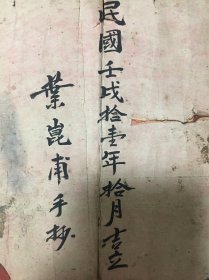 民國壬戌拾壹年拾月吉立
葉崑甫手抄